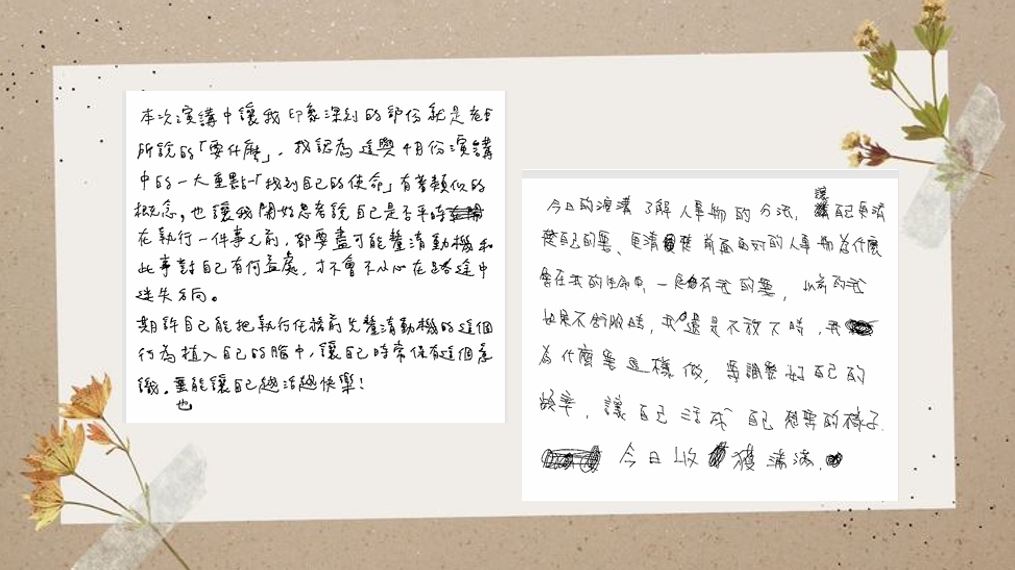 本次演講中讓我印象深刻的部份就是老師
所說的「要什麼」，我認為這與4月份演講
中的一大重點-「找到自己的使命」有著類似的
概念，也讓我開始思考說自己是否平時
在執行一件事之前，都要盡可能釐清動機和
此事對自己有何益處，才不會不小心在路途中
迷失方向。
期許自己能把執行任務前先釐清動機的這個
行為植入自己的腦中，讓自己時常保有這個意
識，也能讓自己越活越快樂！
今日的演講 了解人事物的方法，讓自己更清
楚自己的要、更清楚前面面對的人事物為什麼
會在我的生命中，一定有我的要，以前的我
如果不舒服時，我還是不放下時，我
為什麼要這樣做，要調整好自己的
頻率，讓自己活成自己想要的樣子.
今日收獲滿滿.